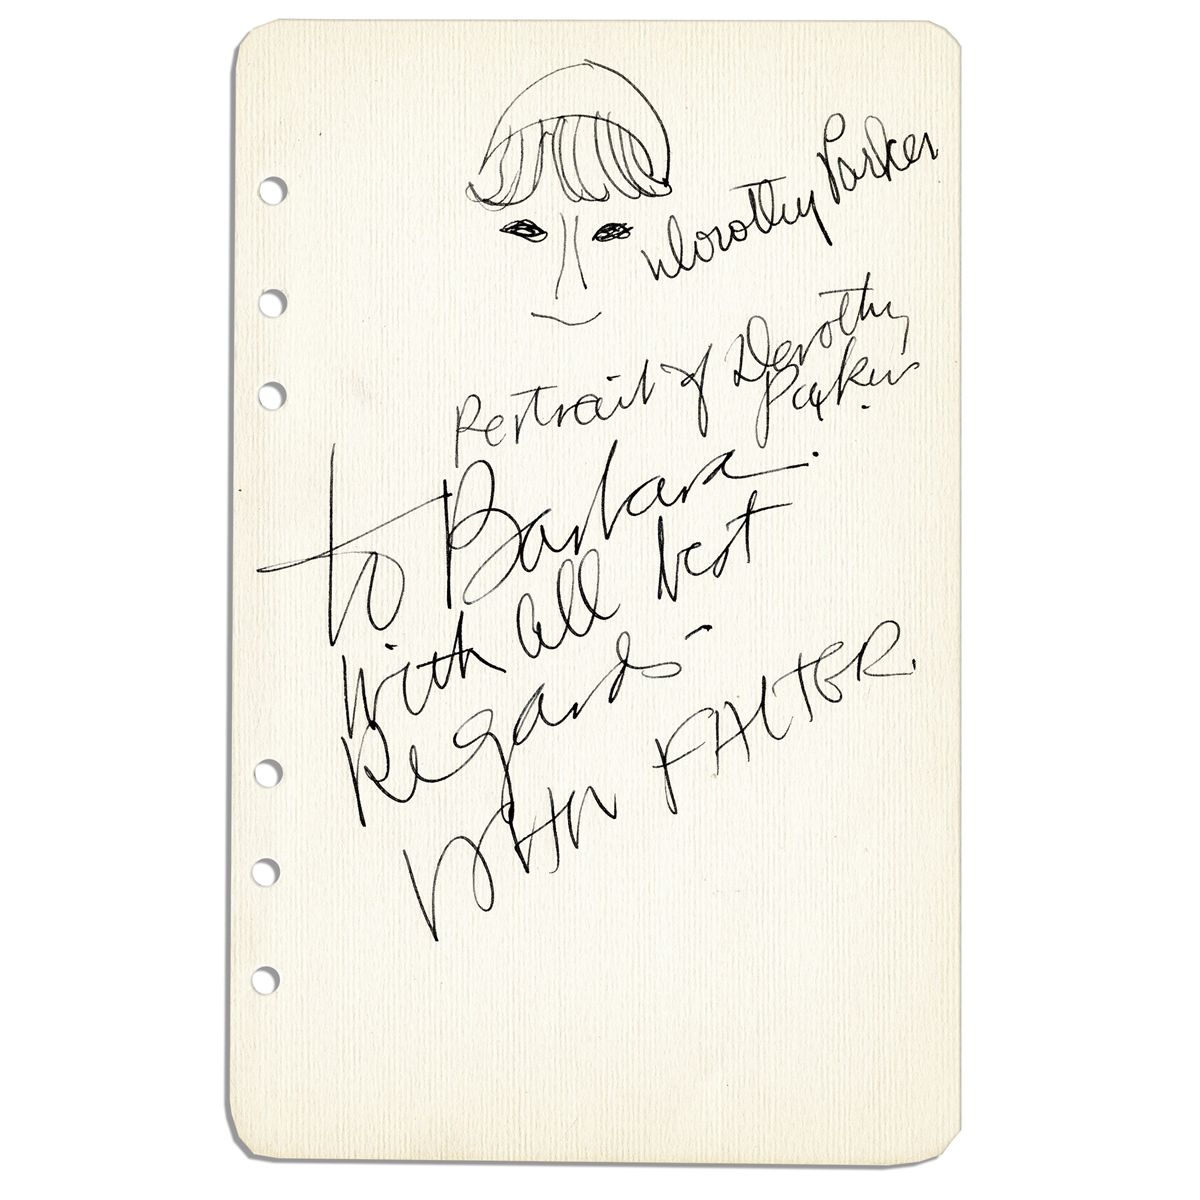 Dorothy Parker
Portrait of Dorothy
Parker
To Barbara.
with all best
Regards -
JOHN FALTER.